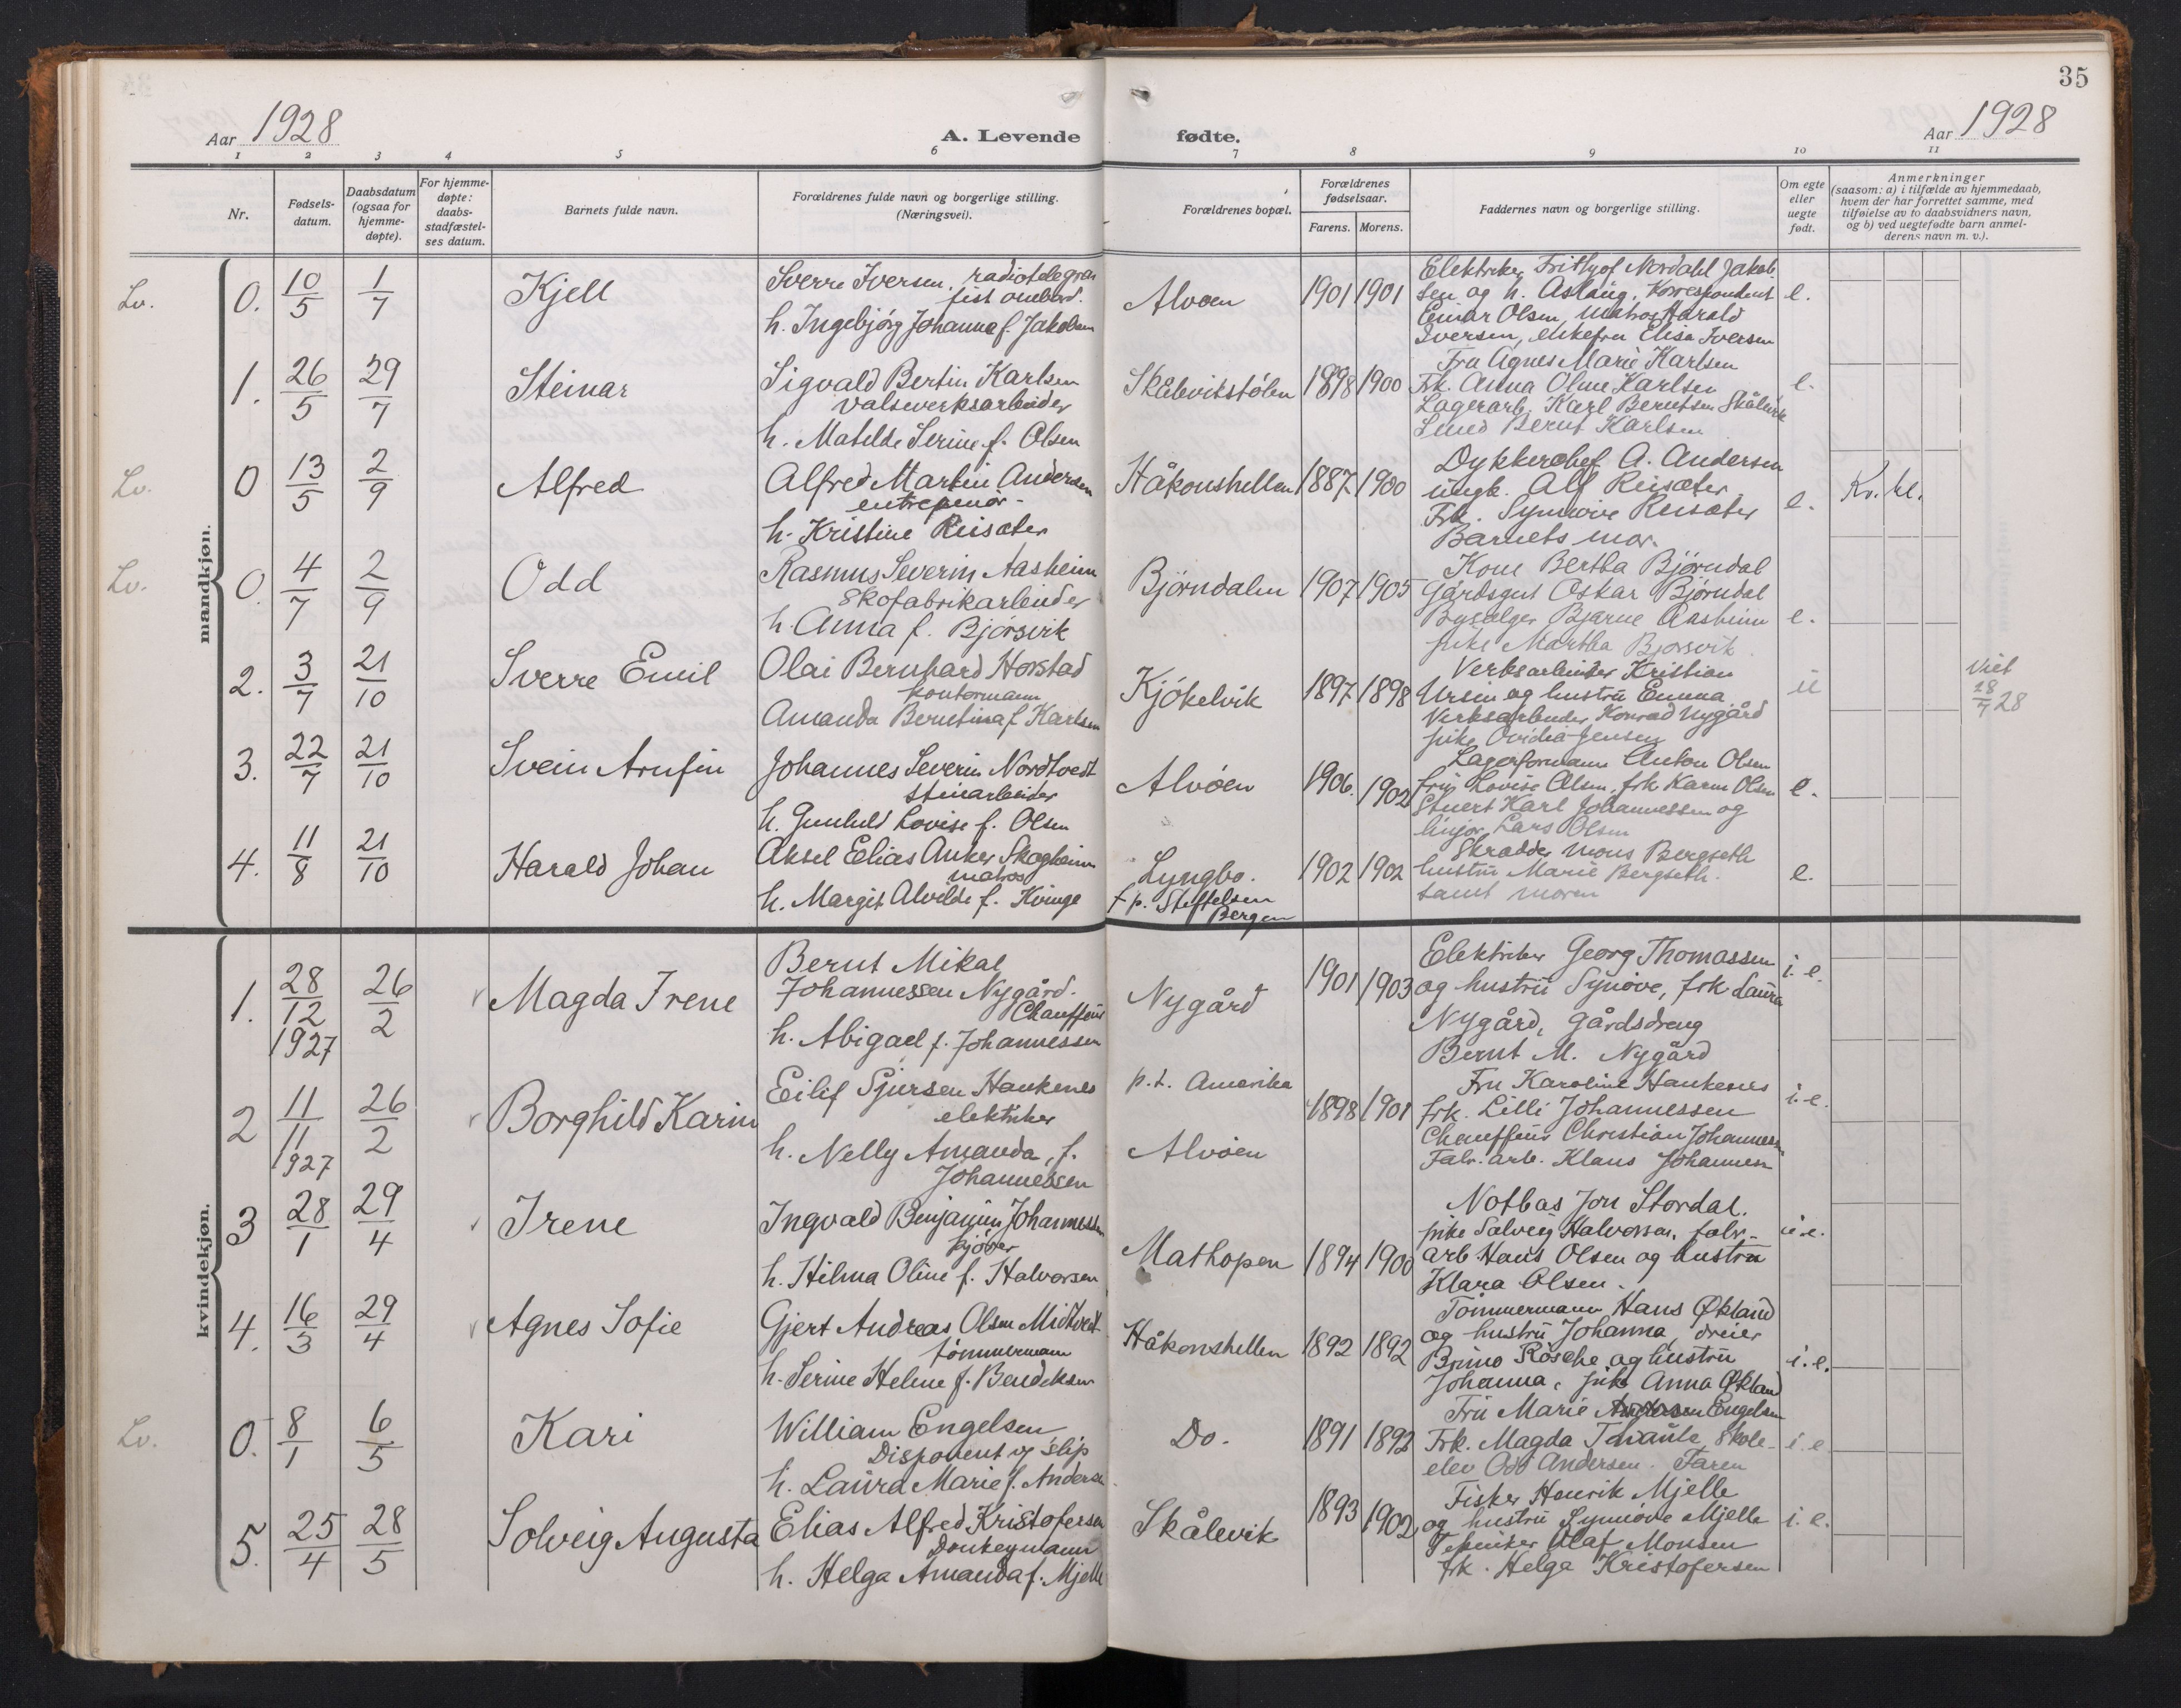 35
Aar 1928
A. Levende fødte.
Aar 1928
1 2 3 4 5 6 7 8 9 10 11
Nr.
Fødsels-
datum.
Daabsdatum
(ogsaa for
hjemme-
døpte).
For hjemme-
døpte:
daabs-
stadfæstel-
ses datum.
Barnets fulde navn.
Forældrenes fulde navn og borgerlige stilling.
(Næringsvei).
Forældrenes bopæl.
Forældrenes
fødselsaar.
Farens. Morens.
Faddernes navn og borgerlige stilling.
Om egte
eller
uegte
født.
Anmerkninger
(saasom: a) i tilfælde av hjemmedaab,
hvem der har forrettet samme, med
tilføielse av to daabsvidners navn,
og b) ved uegtefødte barn anmel-
derens navn m. v.).
mandkjøn.
Lv. 0. 10/5 1/7 Kjell
Sverre Iversen, radiotelegra
fist ombord.
h. Ingebjørg Johanna f. Jakobsen
Alvøen 1901 1901
Elektriker Fritjof Nordahl Jakob
sen og h. Aslaug, Korrespondent
Einar Olsen, matros Harald
Iversen, enkefru Elisa Iversen
e.
1. 26/5 29/7 Steinar
Sigvald Bertin Karlsen
valseverksarbeider
h. Matilde Serine f. Olsen
Skålevikstølen 1898 1900
Fru Agnes Marie Karlsen
Frk. Anna Oline Karlsen
Lagerarb. Karl Berntsen Skålevik
Smed Bernt Karlsen
e.
Lv. 0 13/5 2/9 Alfred
Alfred Martin Andersen
entrepenør
h. Kristine Reisæter
Håkonshellen 1887 1900
Dykkerchef A. Andersen
ungk. Alf Reisæter
Frk. Synnøve Reisæter
Barnets mor.
e. Kv. kl.
Lv. 0. 4/7 2/9 Odd
Rasmus Severin Aasheim
Skofabrikarbeider
h. Anna f. Bjørsvik
Bjørndalen 1907 1905
Kone Bertha Bjørndal
Gårdsgut Oskar Bjørndal
Bysælger Bjarne Aasheim
pike Martha Bjørsvik.
e.
2. 3/7 21/10 Sverre Emil
Olai Bernhard Horstad
kontormann
Amanda Berntina f. Karlsen
Kjøkelvik 1897 1898
Verksarbeider Kristian
Ursin og hustru Emma
Verksarbeider Konrad Nygård
pike Ovidia Jensen
u
Viet
28/7 28
3. 22/7 21/10 Svein Arnfin
Johannes Severin Nordtvedt
stenarbeider
h. Gunhild Lovise f. Olsen
Alvøen 1906. 1902
Lagerformann Anton Olsen
fru Lovise Olsen, frk Karen Olsen
Stuert Karl Johannessen og
Lars Olsen
e.
4. 11/8 21/10 Harald Johan
Aksel Edias Anker Skogheim
matros
h. Margit Alvilde f. Kvinge
Lyngbo.
f. p. Stiftelsen
Bergen
1902 1902
Skrædder Mons Bergseth
hustru Marie Bergseth.
samt moren
e.
kvindekjøn.
1. 28/12 1927 26/2 Magda Irene
Bernt Mikal
Johannessen Nygård.
Chauffeur
h. Abigael f. Johannessen
Nygård 1901 1903
Elektriker Georg Thomassen
og hustru Synøve, frk Laura
Nygård, gårdsdreng
Bernt M. Nygård
i. e.
2 11/11 1927 26/2 Borghild Karin
Eilif Sjursen Haukenes
elektriker
h. Nelly Amanda, f.
Johannessen
p.t. Amerika
Alvøen
1898 1901
Fru Karoline Haukenes
frk. Lilli Johannessen
Chauffeur Christian Johannessen
Fabr. arb. Klaus Johannesen
i. e.
3 28/1 29/4 Irene
Ingvald Benjamin Johannessen
h. Hilma Oline f. Halvorsen
Mathopen 1894 1900
Notbas Jon Stordal.
pike Solveig Halvorsen, fabr-
arb Hans Olsen og hustru
Klara Olsen.
i. e.
4. 16/3 29/4 Agnes Sofie
Gjert Andreas Olsen Midtvedt
tømmermann
h. Serine Helene f. Bendiksen
Håkonshellen 1892 1892
Tømmermann Hans Økland
og hustru Johanna, dreier
Bruno Rösche og hustru
Johanna, pike Anna Økland
i. e.
Lv. 0. 8/1 6/5 Kari
William Engelsen
Disponent og slip
h. Laura Marie f. Andersen
Do. 1891 1892
Fru Marie Engelsen
Frk. Magda skole-
elev Odd Andersen. Faren
i. e.
5. 25/4 28/5 Solveig Augusta
Elias Alfred Kristofersen
Donkeymann
h. Helga Amanda f. Mjelle
Skålevik 1893 1902
Fisker Henrik Mjelle
og hustru Synnøve Mjelle
Tekniker Olaf Monsen
frk. Helga Kristofersen
i. e.